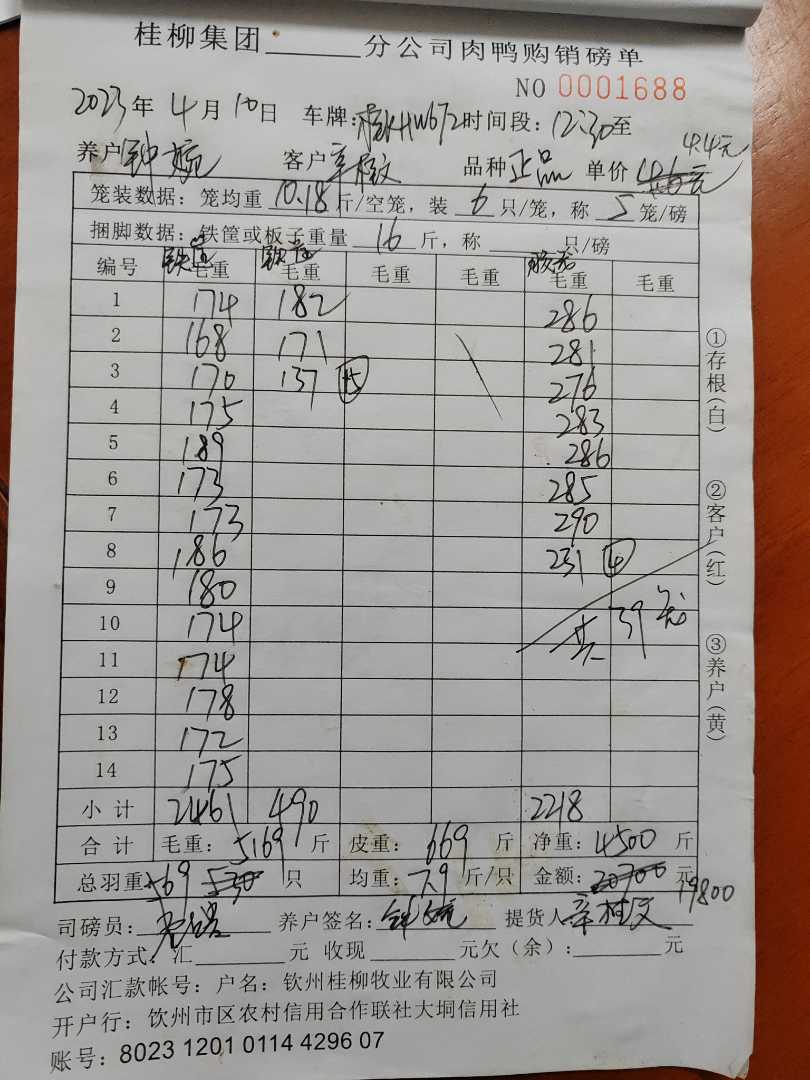 桂柳集团______分公司肉鸭购销磅单
NO 0001688
2023年 4月 10日 车牌：桂KHW672 时间段：12:30至
4.4元
养户 钟婉 客户 辛桂文 品种 正品 单价 4.6元
笼装数据：笼均重 10.18 斤/空笼，装 6 只/笼，称 5 笼/磅
捆脚数据：铁筐或板子重量 16 斤，称 ____ 只/磅
铁筐 铁筐
编号 毛重 毛重 毛重 毛重 毛重 毛重
1 174 182 286
2 168 171 281
3 170 137 15 276
4 175 283
5 189 286
6 173 285
7 173 290
8 186 231 4
9 180
10 174 共39
11 174
12 178
13 172
14 175
小计 2461 490 2218
合计 毛重：5169 斤 皮重：669 斤 净重：4500 斤
总羽重 569 530 只 均重：7.9 斤/只 金额：20700 元
19800
司磅员： 养户签名：钟婉 提货人 辛桂文
付款方式：汇______元 收现______元欠（余）：______元
公司汇款帐号：户名：钦州桂柳牧业有限公司
开户行：钦州市区农村信用合作联社大垌信用社
账号：8023 1201 0114 4296 07
①存根（白）
②客户（红）
③养户（黄）